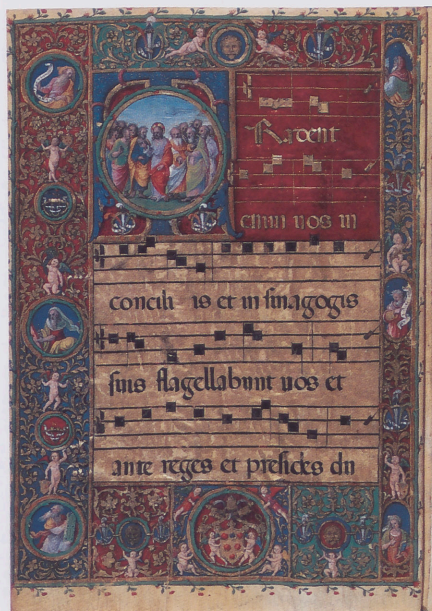 TRadent
enim uos in
concili is et in sinagogis
suis flagellabunt uos et
ante reges et presides du